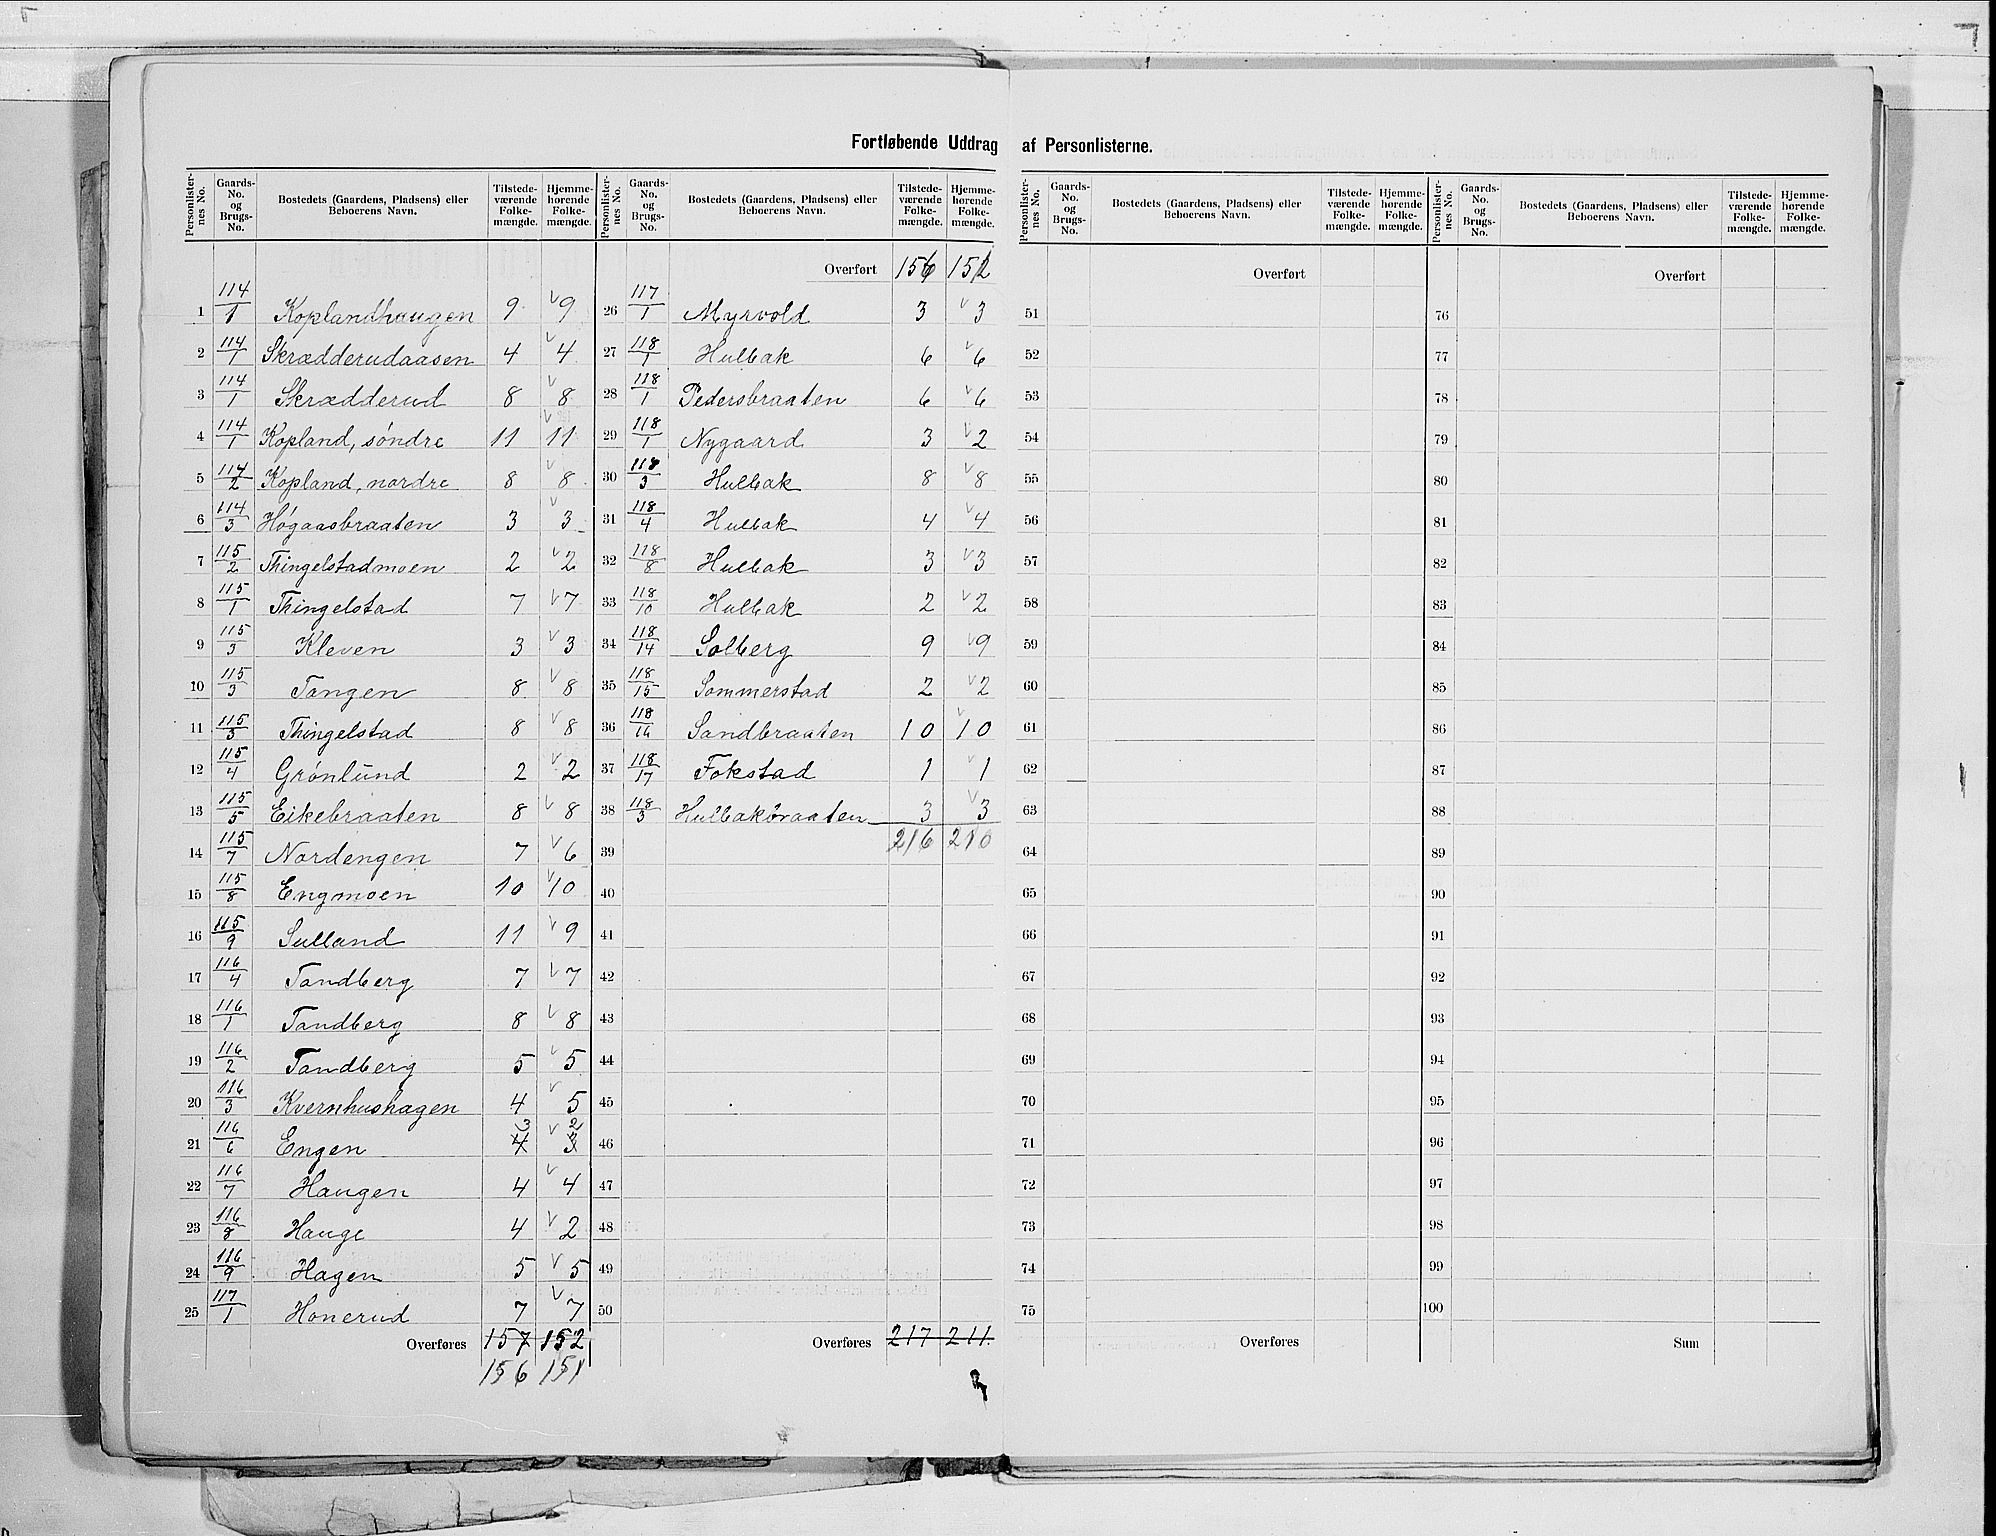 Fortløbende Uddrag af Personlisterne.
Personlister-nes No. Gaards-No. og Brugs-No. Bostedets (Gaardens, Pladsens) eller Beboerens Navn. Tilstede-værende Folke-mængde. Hjemme-hørende Folke-mængde.
1 114/1 Koplandhaugen 9 v 9
2 114/1 Skrædderudaasen 4 v 4
3 114/1 Skrædderud 8 v 8
4 114/1 Kopland, søndre 11 v 11
5 114/2 Kopland, nordre 8 v 8
6 114/3 Høgaasbraaten 3 v 3
7 115/2 Thingelstadmoen 2 v 2
8 115/1 Thingelstad 7 v 7
9 115/3 Kleven 3 v 3
10 115/3 Tangen 8 v 8
11 115/3 Thingelstad 8 v 8
12 115/4 Grønlund 2 v 2
13 115/5 Eikebraaten 8 v 8
14 115/7 Nordengen 7 v 6
15 115/8 Engmoen 10 v 10
16 115/9 Sulland 11 v 9
17 116/4 Tandberg 7 v 7
18 116/1 Tandberg 8 v 8
19 116/2 Tandberg 5 v 5
20 116/3 Kvernhushagen 4 v 5
3 2
21 116/6 Engen 4 v 3
22 116/7 Haugen 4 v 4
23 116/8 Hauge 4 v 2
24 116/9 Hagen 5 v 5
25 117/1 Honerud 7 v 7
Overføres 157 152
156 151
Personlister-nes No. Gaards-No. og Brugs-No. Bostedets (Gaardens, Pladsens) eller Beboerens Navn. Tilstede-værende Folke-mængde. Hjemme-hørende Folke-mængde.
Overført 156 151
26 117/1 Myrvold 3 v 3
27 118/1 Hulbak 6 v 6
28 118/1 Pedersbraaten 6 v 6
29 118/1 Nygaard 3 v 2
30 118/3 Hulbak 8 v 8
31 118/4 Hulbak 4 v 4
32 118/8 Hulbak 3 v 3
33 118/10 Hulbak 2 v 2
34 118/14 Solberg 9 v 9
35 118/15 Sommerstad 2 v 2
36 118/16 Sandbraaten 10 v 10
37 118/17 Fokstad 1 v 1
38 118/3 Hulbakbraaten 3 v 3
39 216 210
40
41
42
43
44
45
46
47
48
49
50
Overføres 217 211.
Personlister-nes No. Gaards-No. og Brugs-No. Bostedets (Gaardens, Pladsens) eller Beboerens Navn. Tilstede-værende Folke-mængde. Hjemme-hørende Folke-mængde.
Overført
51
52
53
54
55
56
57
58
59
60
61
62
63
64
65
66
67
68
69
70
71
72
73
74
75
Overføres
Personlister-nes No. Gaards-No. og Brugs-No. Bostedets (Gaardens, Pladsens) eller Beboerens Navn. Tilstede-værende Folke-mængde. Hjemme-hørende Folke-mængde.
Overført
76
77
78
79
80
81
82
83
84
85
86
87
88
89
90
91
92
93
94
95
96
97
98
99
100
Sum